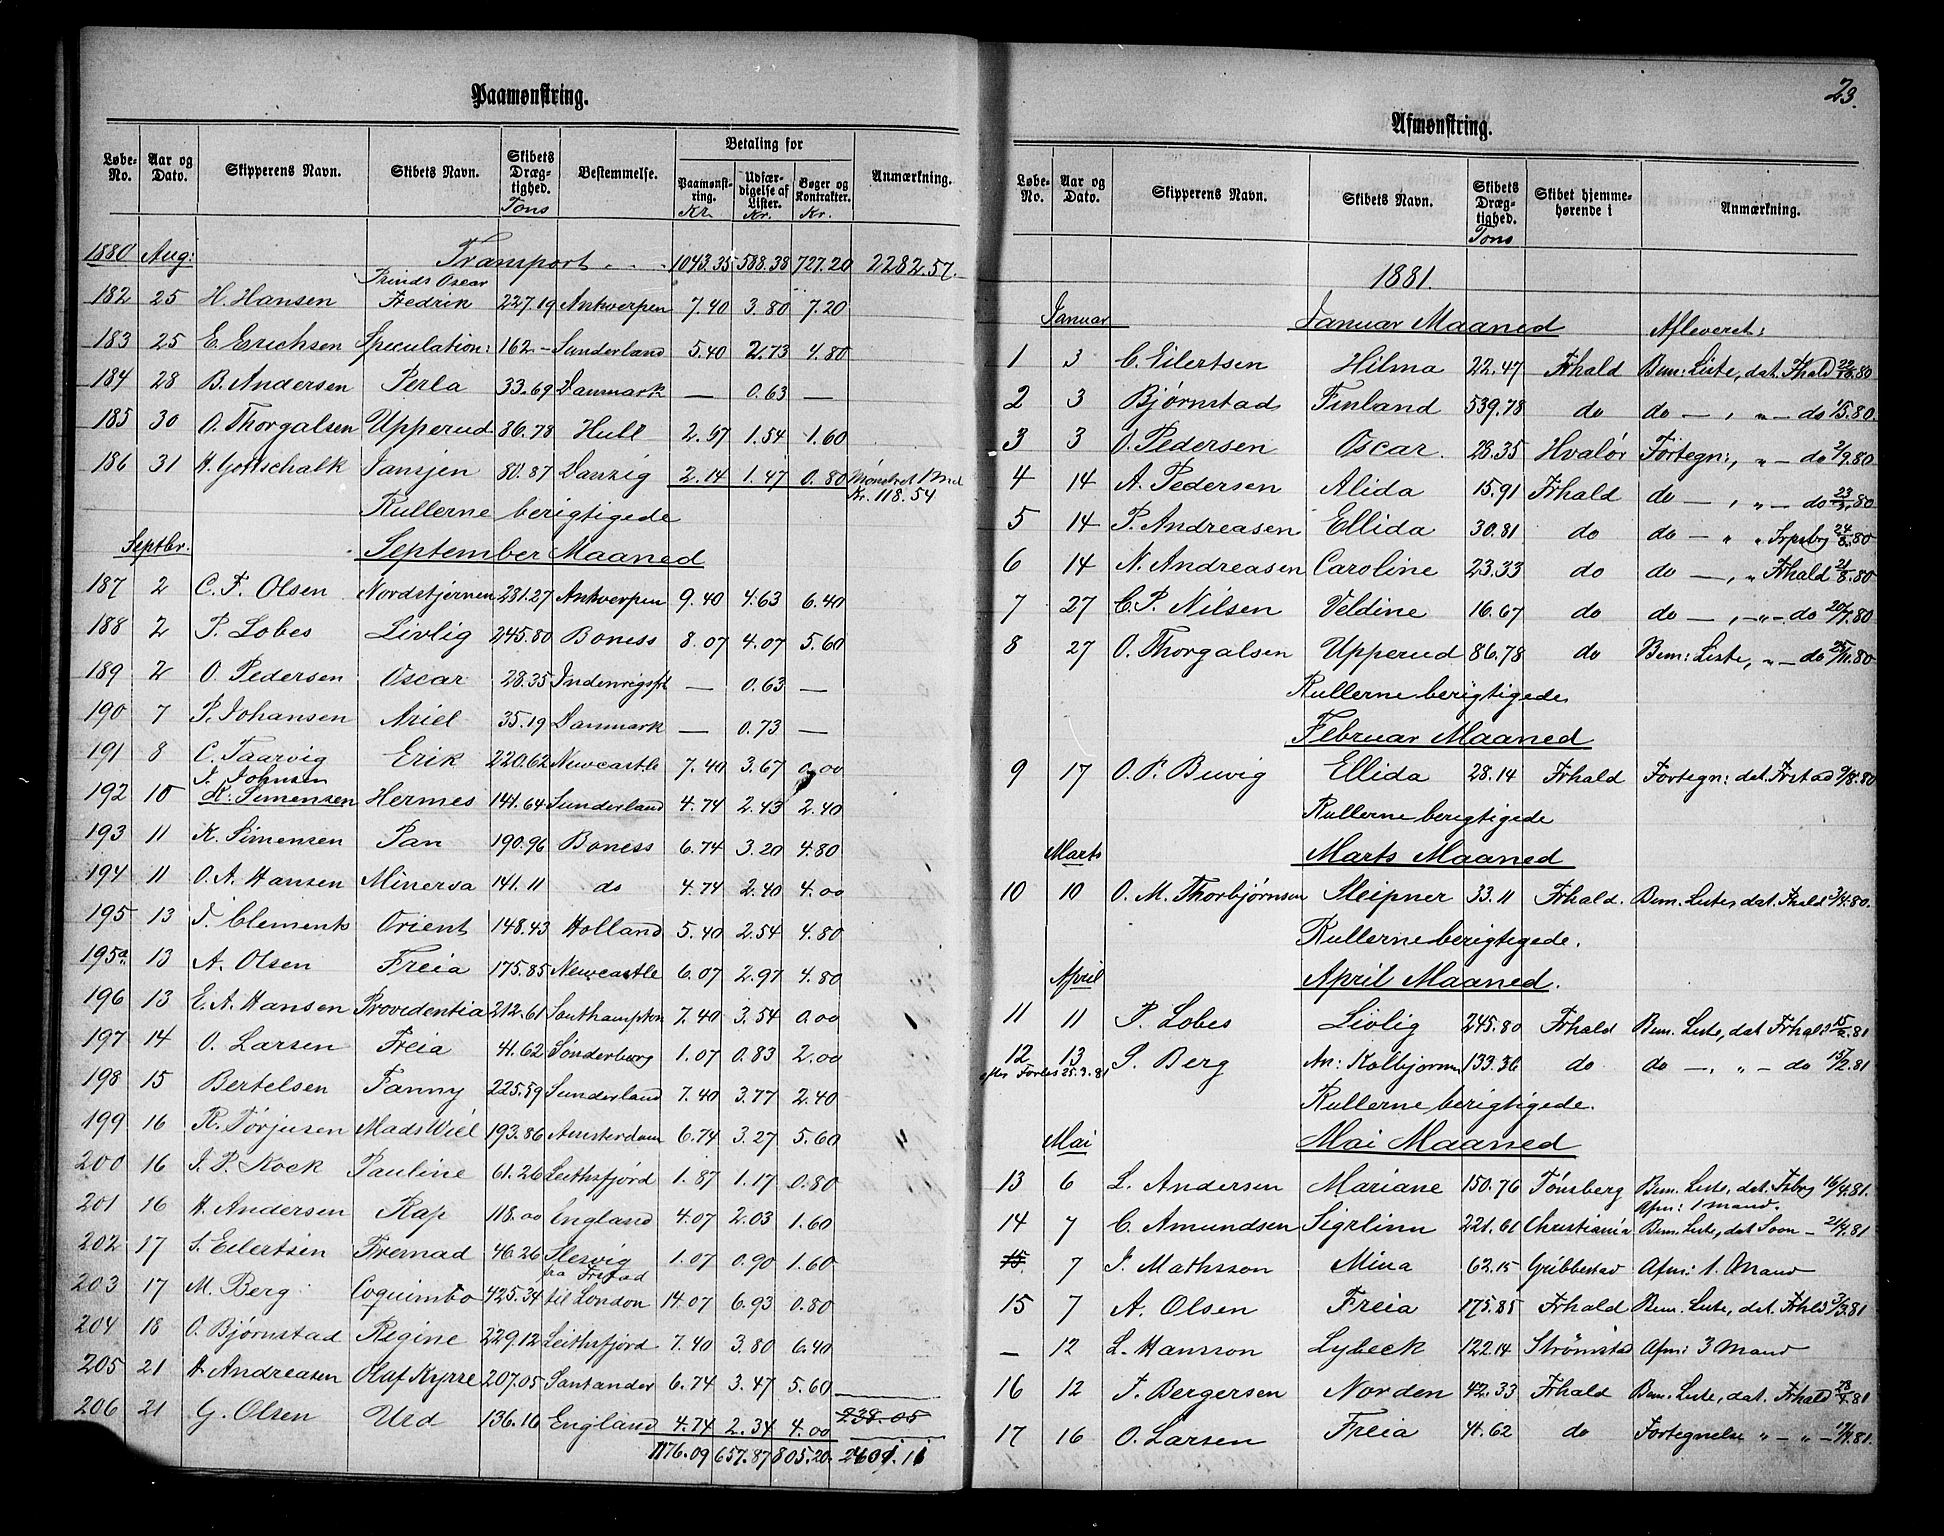 Paamønstring.
Løbe-No. Aar og Dato. Skipperens Navn. Skibets Navn. Skibets Dræg-tighed. Tons Bestemmelse. Betaling for Paamønst-ring. Kr. Udfær-digelse af Lister. Kr. Bøger og Kontrakter. Kr. Anmærkning.
1880 Aug: Transport . . . 1043.35 588.38 727.20 2282.57.
182 25 H. Hansen Prinds Oscar Fredrik 227.19 Antwerpen 7.40 3.80 7.20
183 25 E. Erichsen Speculation: 162 - Sunderland 5.40 2.73 4.80
184 28 B. Andersen Perla 33.69 Danmark — 0.63 —
185 30 O. Thorgalsen Upperud 86.78 Hull 2.67 1.54 1.60
186 31 H. Gottschalk Jansjen 80.87 Danzig 2.14 1.47 0.80 Mønstret 1 Md Kr. 118.54
Rullerne berigtigede
Septbr. September Maaned
187 2 C. F. Olsen Nordstjernen 281.27 Antwerpen 9.40 4.63 6.40
188 2 P. Lobes Livlig 245.80 Boness 8.07 4.07 5.60
189 2 O. Pedersen Oscar 28.35 Indenrigsfrt — 0.63 —
190 7 P. Johansen Ariel 35.19 Danmark — 0.73 —
191 8 C. Taarvig Erik 220.62 Newcastle 7.40 3.67 0.00
J. Johnsen
192 10 K. Simensen Hermes 141.64 Sunderland 4.74 2.43 2.40
193 11 K. Simensen Pan 190.96 Boness 6.74 3.20 4.80
194 11 O. A. Hansen Minerva 141.11 do 4.74 2.40 4.00
195 13 J. Clements Orient 148.43 Holland 5.40 2.54 4.80
195a. 13 A. Olsen Freia 175.85 Newcastle 6.07 2.97 4.80
196 13 E. A. Hansen Providentia 212.61 Southampton 7.40 3.54 0.00
197 14 O. Larsen Freia 41.62 Sønderborg 1.07 0.83 2.00
198 15 Bertelsen Fanny 225.59 Sunderland 7.40 3.77 2.40
199 16 K. Torjusen Mads Wiel 193.86 Amsterdam 6.74 3.27 5.60
200 16 J. P. Kock Pauline 61.26 Leithsfjord 1.87 1.17 0.80
201 16 H. Andersen Rap 118.00 England 4.07 2.03 1.60
202 17 S. Eilertsen Fremad 46.26 Slesvig 1.07 0.90 1.60
203 17 M. Berg Coquimbo 425.34 fra Frstad til London 14.07 6.93 0.80
204 18 O. Bjørnstad Regine 229.12 Leithsfjord 7.40 3.80 6.40
205 21 H. Andreasen Olaf Kyrre 207.05 Santander 6.74 3.47 5.60
206 21 G. Olsen Urd 136.16 England 4.74 2.34 4.00 238.05
1176.09 657.87 805.20. 2601.11
23.
Afmønstring.
Løbe-No. Aar og Dato. Skipperens Navn. Skibets Navn. Skibets Dræg-tighed. Tons Skibet hjemme-hørende i Anmærkning.
1881.
Januar Januar Maaned Afleveret:
1 3 C. Eilertsen Hilma 22.47 Frhald Bem: Liste, dat. Fhald 80
2 3 Bjørnstad Finland 539.78 do do —, „ — do 1/5.80.
3 3 O. Pedersen Oscar. 28.35 Hvalør Fortegn:, „ — do 2/9.80
4 14 A. Pedersen Alida 15.91 Frhald do —, „ — do 80
5 14 P. Andreasen Ellida 30.81 do do — „ „ 24/8.80
6 14 N. Andreasen Caroline 23.33 do do —, „ Frhald 21/8.80
7 27 C. P. Nilsen Veldine 16.67 do do —, -„- do 20/7.80
8 27 O. Thorgalsen Upperud 86.78 do Bem: Liste, „ — do 25/11.80
Rullerne berigtigede
Februar Maaned
9 17 O. P. Buvig Ellida 28.14 Frhald Fortegn: dat. Frstad 9/8.80
Rullerne berigtigede
Marts Marts Maaned
10 10 O. M. Thorbjørnsen Sleipner 33.11 Frhald. Bem. Liste, dat. Fhald 3/4.80.
Rullerne berigtigede.
April April Maaned.
11 11 P. Lobes Livlig 245.80 Frhald Bem. Liste, dat Frhald 15/2.81
12 13 S. Berg An: Kolbjørnsen 133.36 do do —, „ — do 15/2.81
efter Forlis 25.3.81
Rullerne berigtigede.
Mai Mai Maaned
13 6 L. Andersen Mariane 150.76 Tønsberg Bem. Liste, dat. 16/4.81.
Afm: 1 mand.
14 7 C. Amundsen Sigrlinn 221.61 Christiania Bem: Liste, dat Soon - 2/4.81
15 7 J. Mathsson Mina 62.15 Gribbestad Afm: 1. Mand
15 7 A. Olsen Freia 175.85 Frhald Bem. Liste, dat. Frhld 3/3.81
— 12 L. Hansson Lybeck 122.14 Strømstad Afm: 3 Mand
16 12 J. Bergersen Norden 42.33 Frhald Bem. Liste, dat. Frhald 81
17 16 O. Larsen Freia 41.62 do Fortegnelse „ - „ - 81.